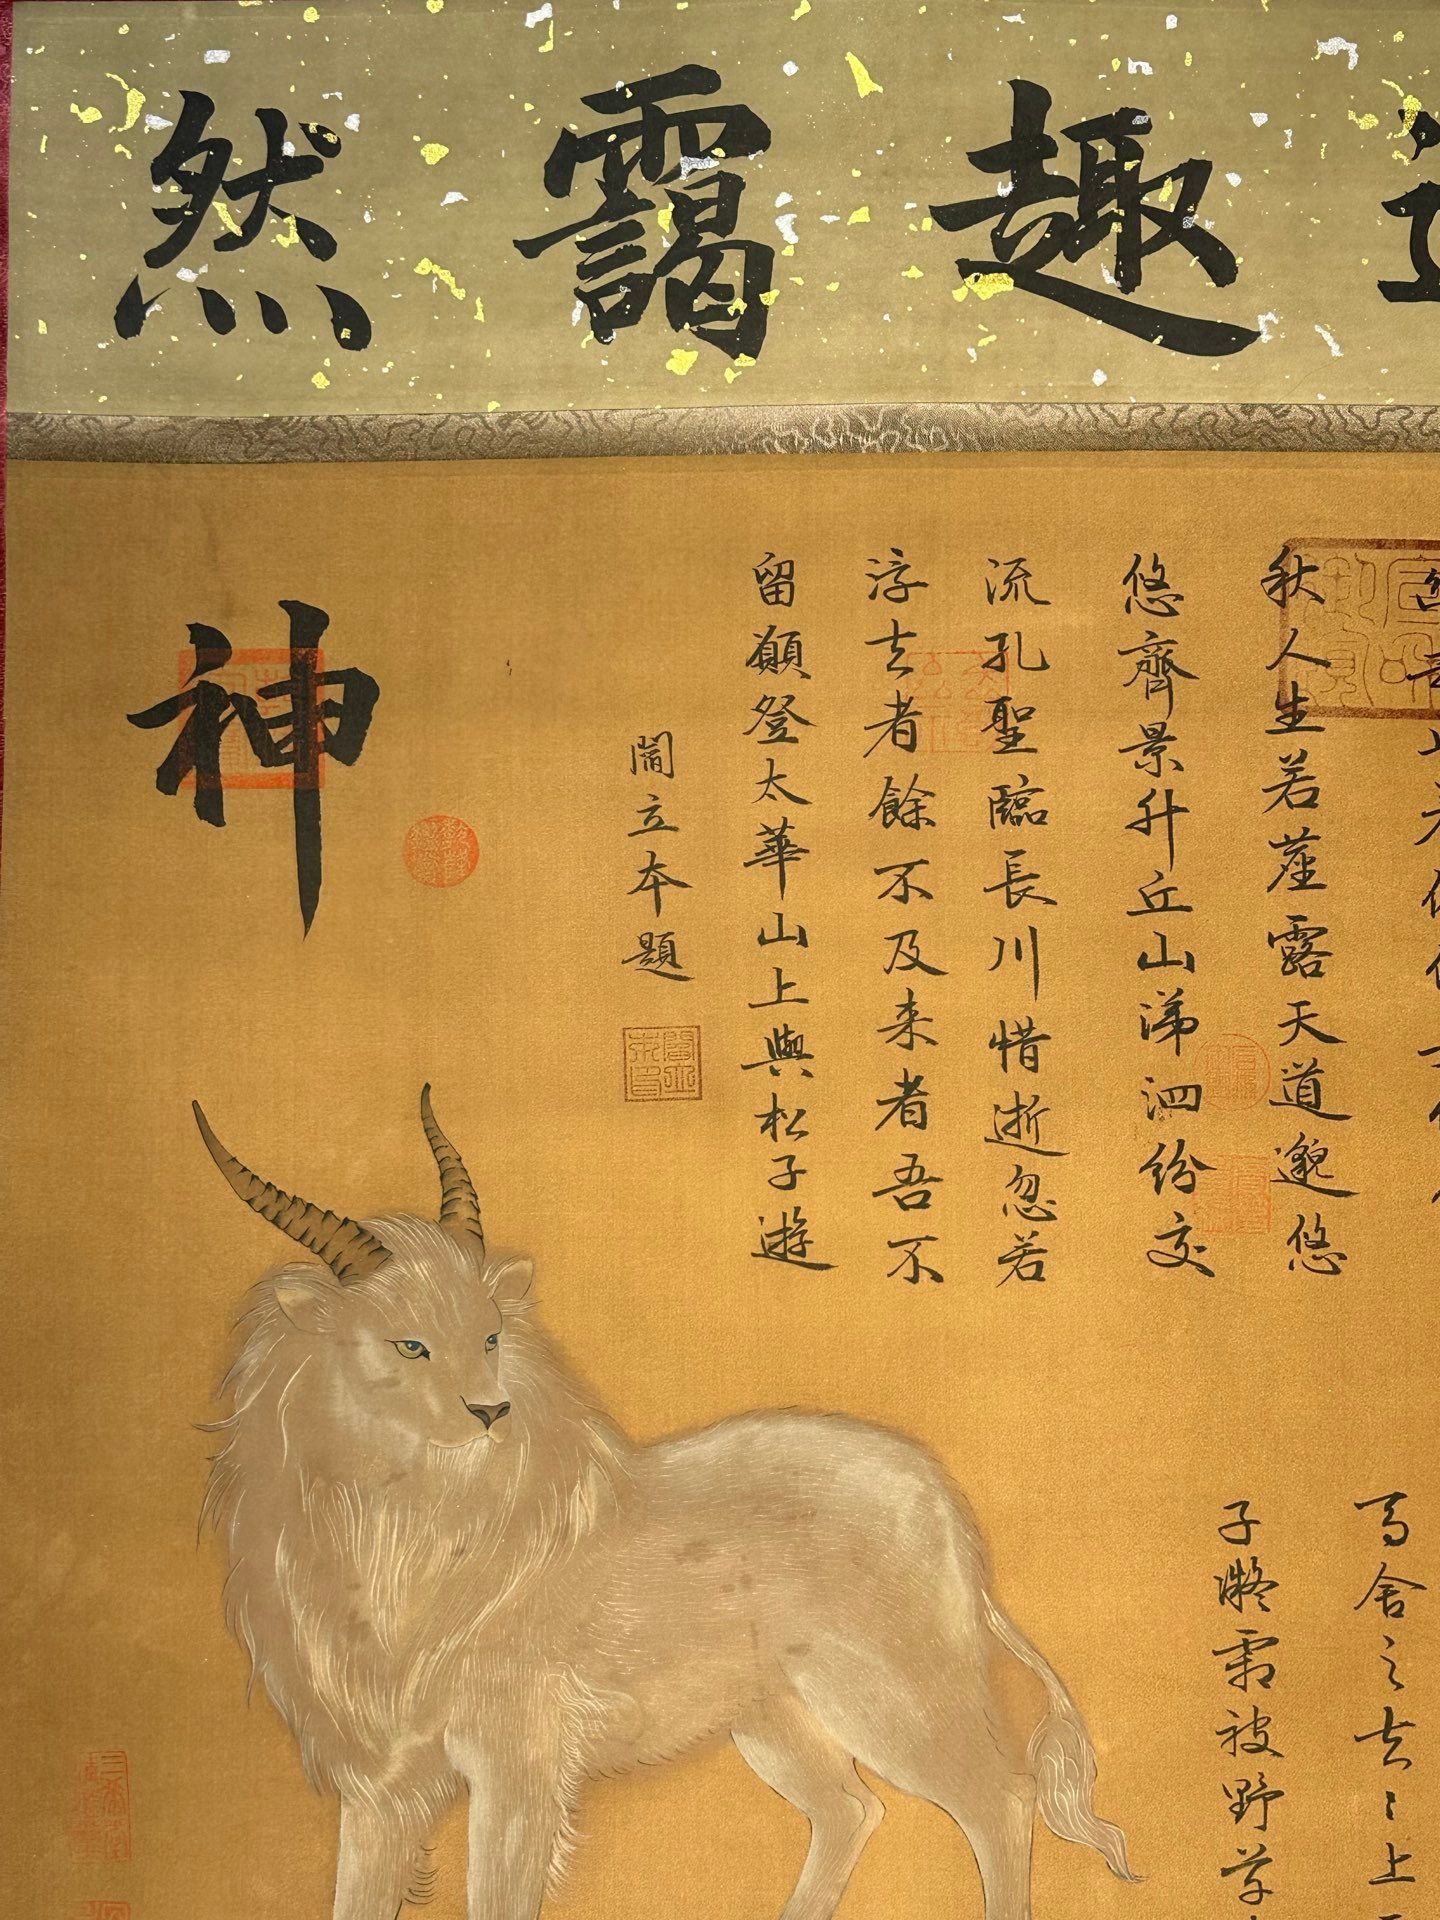 趣靄然
秋人生若塵露天道邈悠
悠齊景升丘山涕泗紛交
流孔聖臨長川惜逝忽若
浮去者餘不及来者吾不
留願登太華山上與松子遊
閻立本題
神
馬舍之去〻上
子凝霜被野草